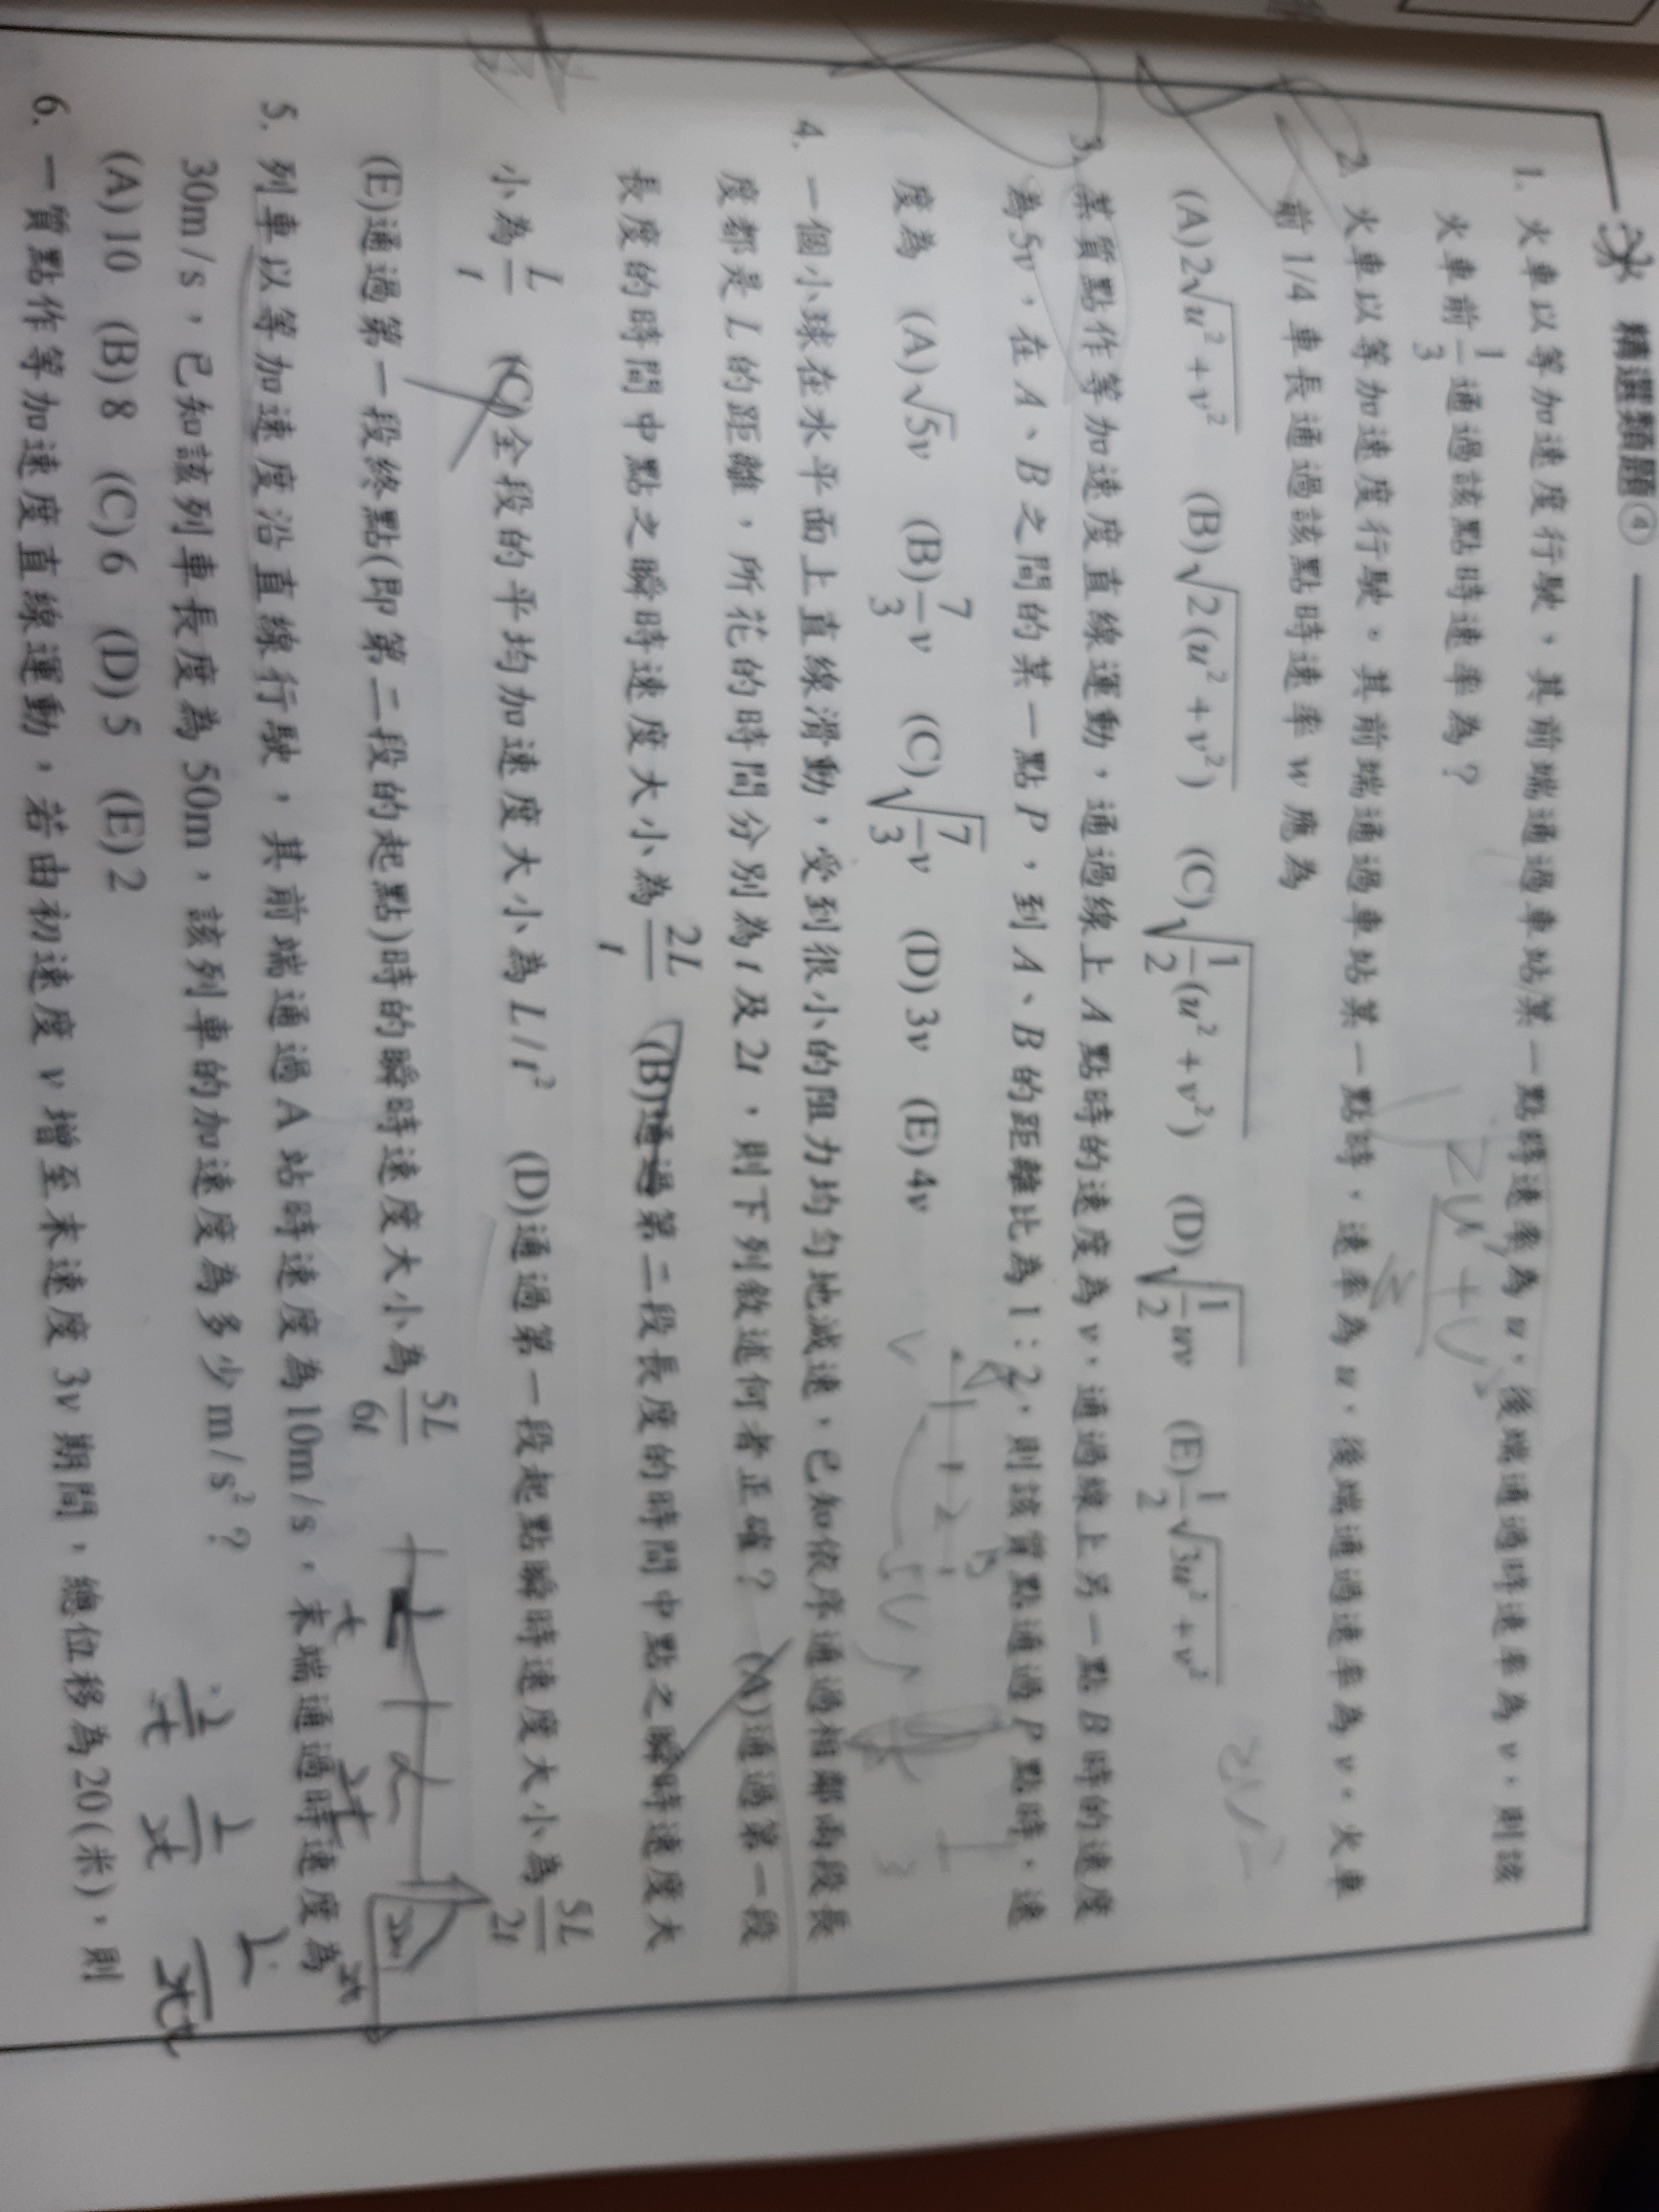 精選類題④
1. 火車以等加速度行駛，其前端通過車站某一點時速率為 u，後端通過時速率為 v，則該
火車前 1/3 通過該點時速率為？
2. 火車以等加速度行駛。其前端通過車站某一點時，速率為 u，後端通過速率為 v。火車
前 1/4 車長通過該點時速率 w 應為
(A) 2√(u²+v²) (B) √2(u²+v²) (C) √(1/2(u²+v²)) (D) √(1/2 uv) (E) 1/2 √(3u²+v²)
3. 某質點作等加速度直線運動，通過線上 A 點時的速度為 v，通過線上另一點 B 時的速度
為 5v，在 A、B 之間的某一點 P，到 A、B 的距離比為 1：2，則該質點通過 P 點時，速
度為 (A) √5v (B) 7/3 v (C) √(7/3) v (D) 3v (E) 4v
4. 一個小球在水平面上直線滑動，受到很小的阻力均勻地減速，已知依序通過相鄰兩段長
度都是 L 的距離，所花的時間分別為 t 及 2t，則下列敘述何者正確？ (A)通過第一段
長度的時間中點之瞬時速度大小為 2L/t (B)通過第二段長度的時間中點之瞬時速度大
小為 L/t (C)全段的平均加速度大小為 L/t² (D)通過第一段起點瞬時速度大小為 5L/2t
(E)通過第一段終點(即第二段的起點)時的瞬時速度大小為 5L/6t
5. 列車以等加速度沿直線行駛，其前端通過 A 站時速度為 10m/s，末端通過時速度為
30m/s，已知該列車長度為 50m，該列車的加速度為多少 m/s²？
(A) 10 (B) 8 (C) 6 (D) 5 (E) 2
6. 一質點作等加速度直線運動，若由初速度 v 增至末速度 3v 期間，總位移為 20(米)，則